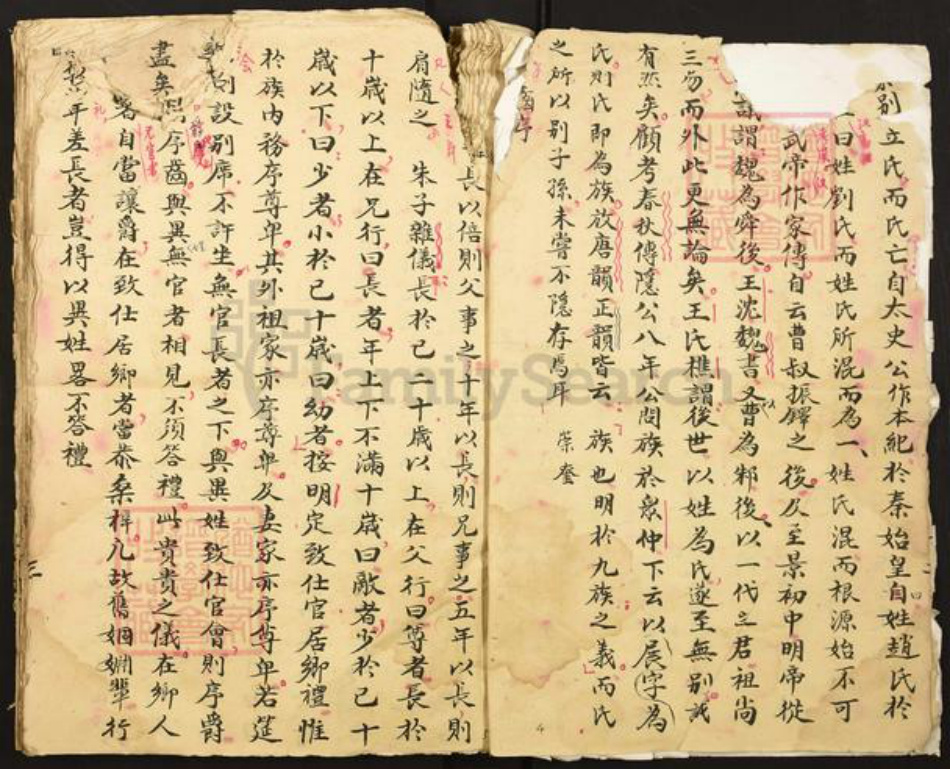 別立氏而氏亡自太史公作本紀於秦始皇自姓趙氏於
曰姓劉氏而姓氏所混而為一姓氏混而根源始不可
武帝作家傳自云曹叔振鐸之後及至景初中明帝從
議謂魏為舜後王沈魏書又曹為邾後以一代之君祖尚
三易而外此更無論矣王氏樵謂後世以姓為氏遂至無別誠
有然矣顧考春秋傳隱公八年公問族於衆仲下云以展字為
氏則氏即為族放唐韻正韻皆云族也明於九族之義而氏
之所以別子孫未嘗不隱存焉耳
榮登
年
長以倍則父事之十年以長則兄事之五年以長則
肩隨之 朱子雜儀長於己二十歲以上在父行曰尊者長於
十歲以上在兄行曰長者年上下不滿十歲曰敵者少於己十
歲以下曰少者小於己十歲曰幼者按明定致仕官居鄉禮惟
於族內務序尊卑其外祖家亦序尊卑及妻家亦序尊卑若筵
則設別席不許坐無官長者之下與異姓致仕官會則序爵
盡矣爵同序齒與異無官者相見不須答禮此貴貴之儀在鄉人
者自當讓爵在致仕居鄉者當恭桑梓凡故舊姻婣輩行
年差長者豈得以異姓畧不答禮
FamilySearch